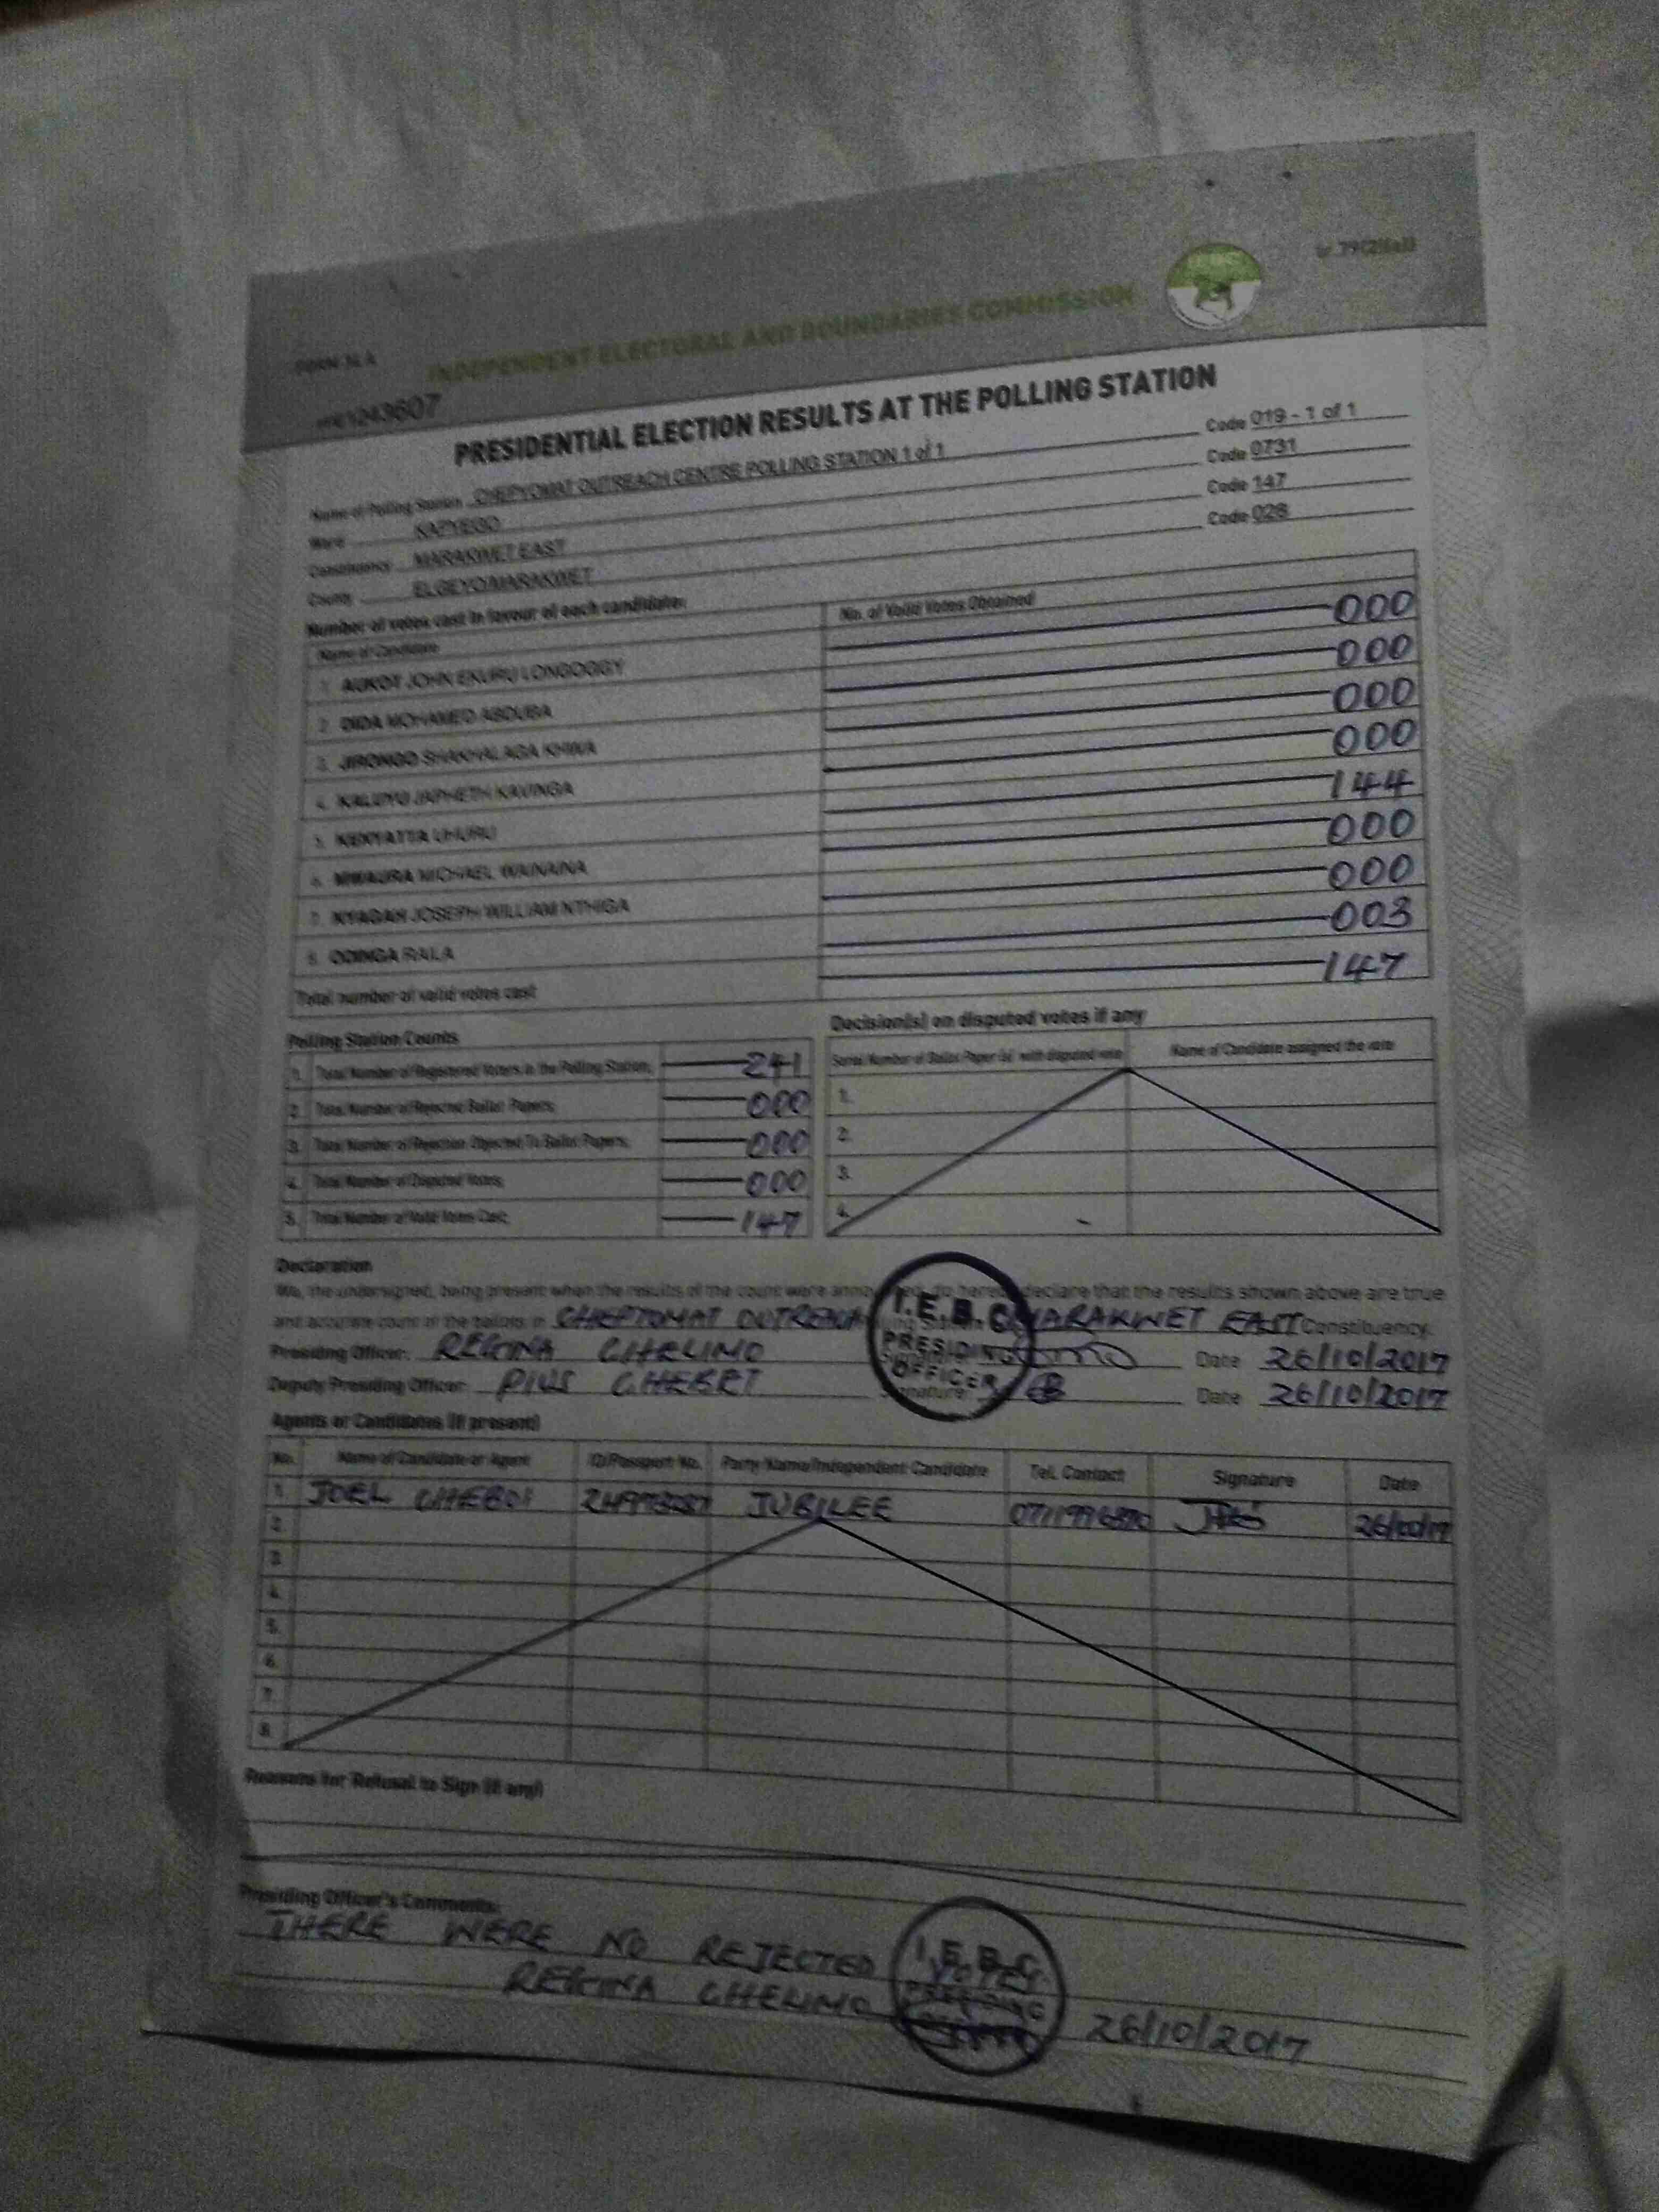 r. 79(2)(a)
FORM 34 A
INDEPENDENT ELECTORAL AND BOUNDARIES COMMISSION
1243607
PRESIDENTIAL ELECTION RESULTS AT THE POLLING STATION
Name of Polling Station CHEPYOMAT OUTREACH CENTRE POLLING STATION 1 of 1 Code 019 - 1 of 1
Ward KAPYEGO Code 0731
Constituency MARAKWET EAST Code 147
County ELGEYO/MARAKWET Code 028
Number of votes cast in favour of each candidate:
Name of Candidate No. of Valid Votes Obtained
1. AUKOT JOHN EKURU LONGOGGY 000
2. DIDA MOHAMED ABDUBA 000
3. JIRONGO SHAKHALAGA KHWA 000
4. KALUYU JAPHETH KAVINGA 000
5. KENYATTA UHURU 144
6. MWAURA MICHAEL WAINAINA 000
7. NYAGAH JOSEPH WILLIAM NTHIGA 000
8. ODINGA RAILA 003
Total number of valid votes cast 147
Polling Station Counts
1. Total Number of Registered Voters in the Polling Station; 241
2. Total Number of Rejected Ballot Papers; 000
3. Total Number of Rejection Objected To Ballot Papers; 000
4. Total Number of Disputed Votes; 000
5. Total Number of Valid Votes Cast; 147
Decision(s) on disputed votes if any
Serial Number of Ballot Paper (s) with disputed vote Name of Candidate assigned the vote
1.
2.
3.
4.
Declaration
We, the undersigned, being present when the results of the count were announced, do hereby declare that the results shown above are true
and accurate count of the ballots in CHEPTOMAT OUTREACH MARAKWET EAST Constituency.
Presiding Officer: REGINA CHELIMO Date 26/10/2017
Deputy Presiding Officer: PIUS CHEBET Signature: Date 26/10/2017
I.E.B.C
PRESIDING
OFFICER
Agents or Candidates (if present)
No. Name of Candidate or Agent ID/Passport No. Party Name/Independent Candidate Tel. Contact Signature Date
1. JOEL CHEBOI JUBILEE 26/10/17
2.
3.
4.
5.
6.
7.
8.
Reasons for Refusal to Sign (if any)
Presiding Officer's Comments:
THERE WERE NO REJECTED VOTES
REGINA CHELIMO 26/10/2017
I.E.B.C
PRESIDING